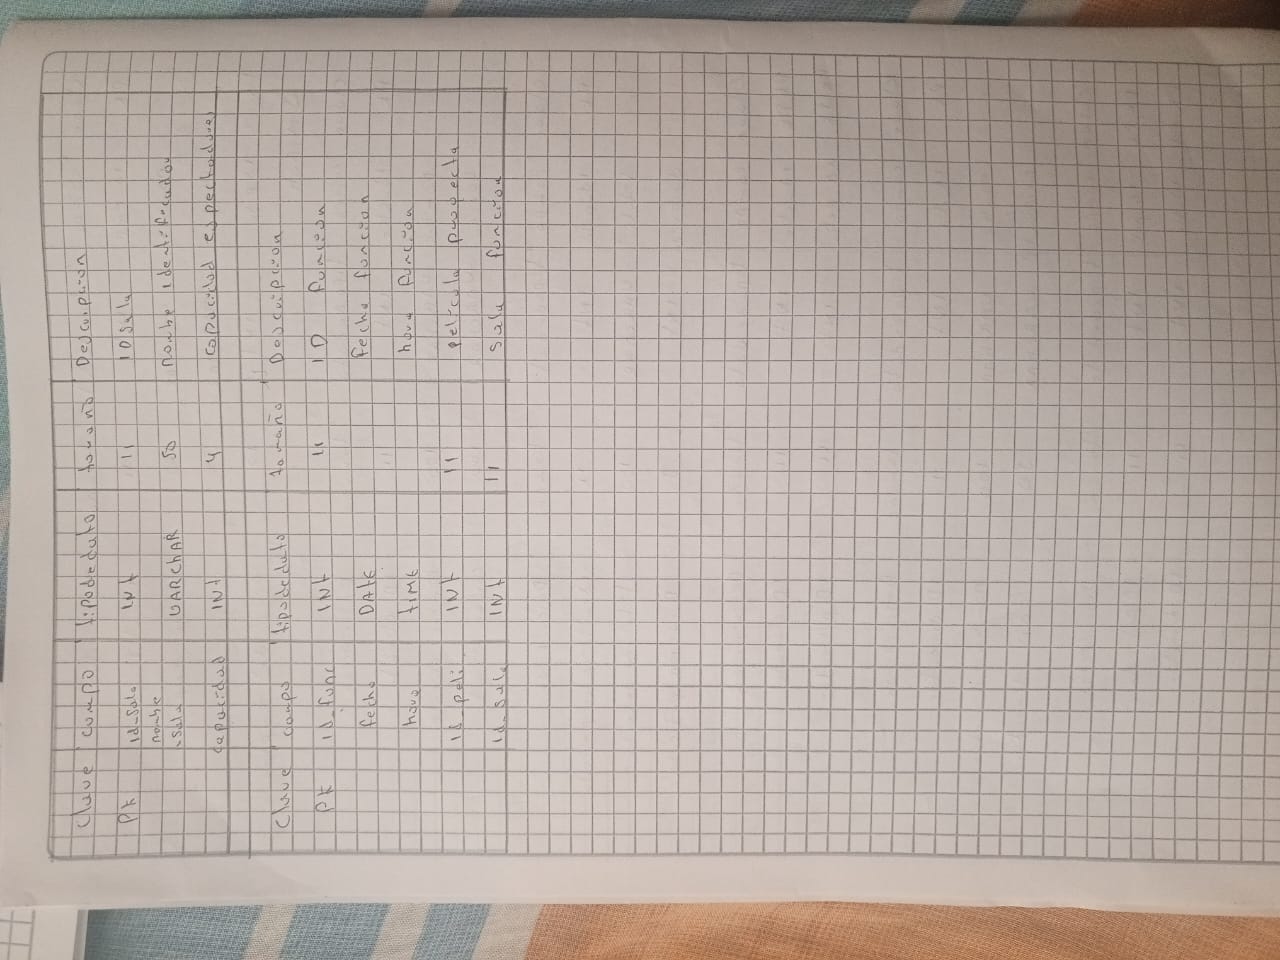 Clave campo tipodedato tamaño Descripcion
PK id_sala INt 11 ID sala
nombre
_sala VARChAR 50 nombre identificador
capacidad INt 4 capacidad espectadores
Clave campo tipodedato tamaño Descripcion
PK id_func INt 11 ID funcion
fecha DAtE fecha funcion
hora tIME hora función
id_peli INt 11 pelicula proyecta
id_sala INt 11 sala función